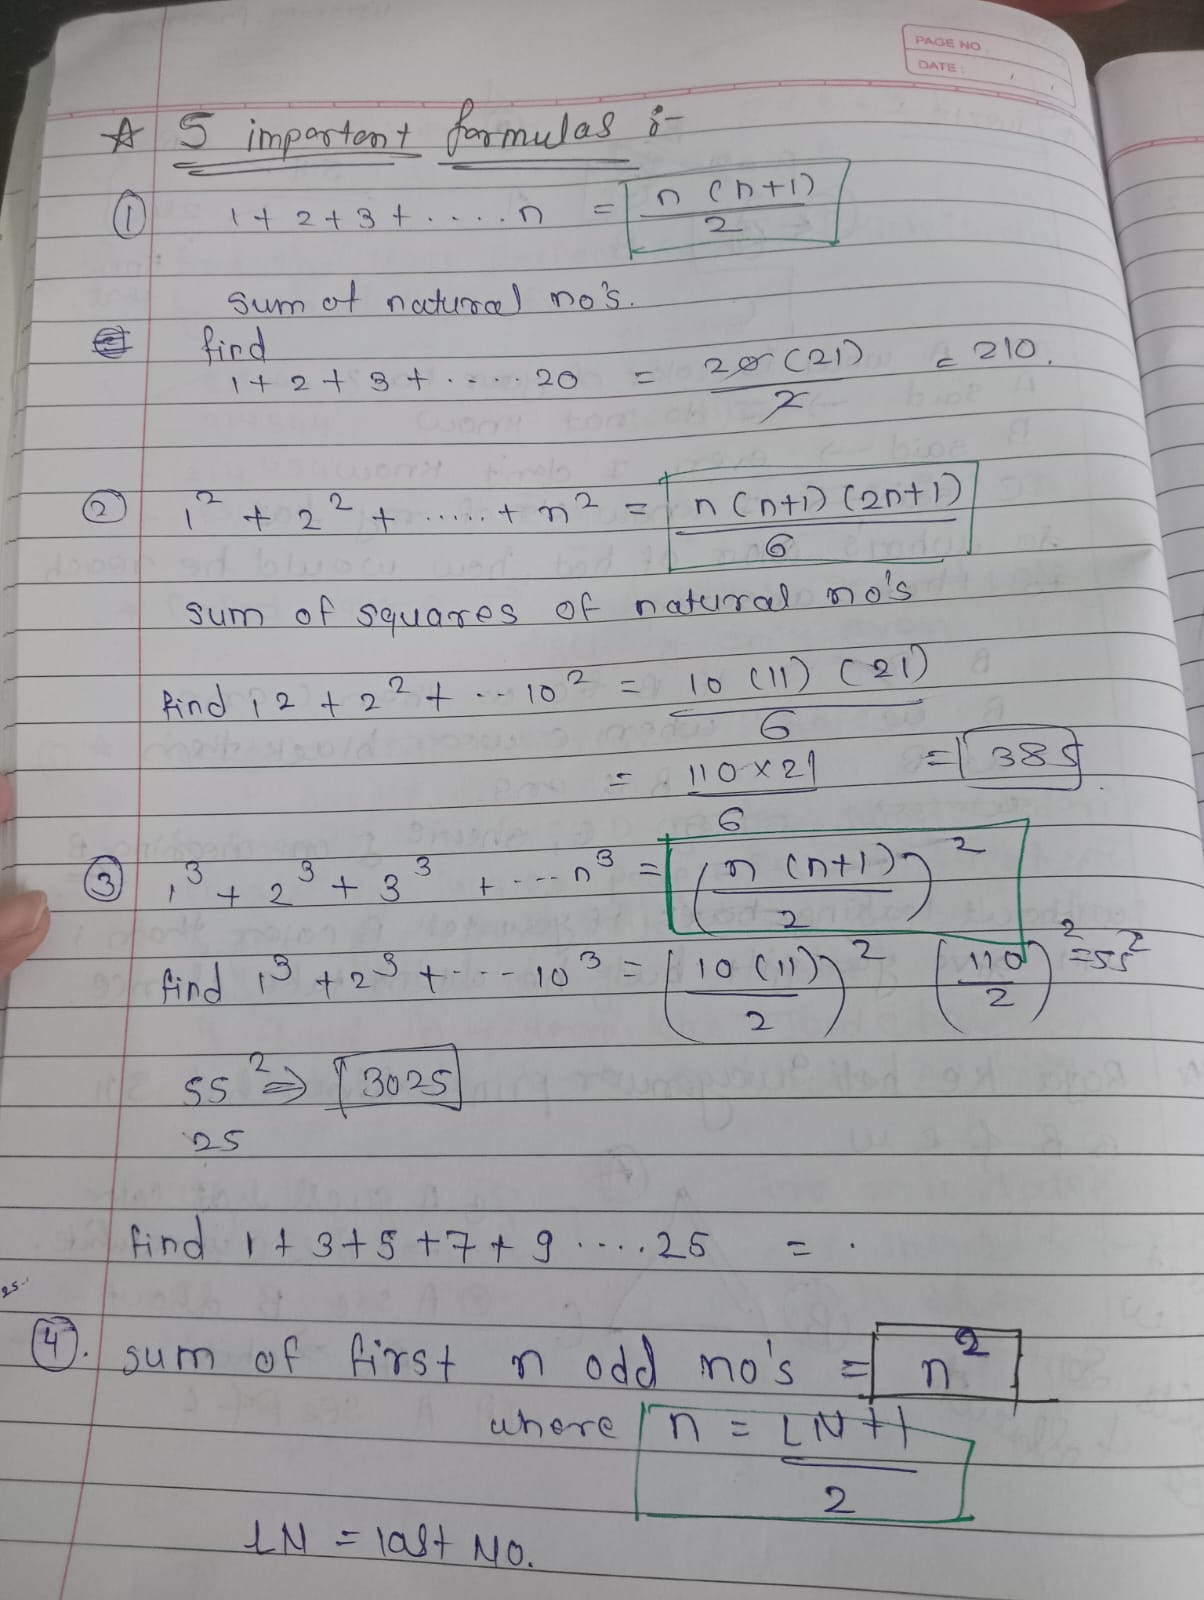 PAGE NO.
DATE:
☆ 5 important formulas :-
① 1+2+3+.....n = n(n+1)/2
sum of natural no's.
find
1+2+3+.....20 = 20(21)/2 = 210.
② 1² + 2² + ..... + n² = n(n+1)(2n+1)/6
sum of squares of natural no's
find 12 + 2² + ...10² = 10(11)(21)/6
= 110×21/6 = 385
③ 1³ + 2³ + 3³ + ....n³ = (n(n+1)/2)²
find 1³+2³+....10³ = (10(11)/2)² (110/2)² = 55²
55² ⇒ 3025
25
find 1+3+5+7+9....25 = .
25..
④. sum of first n odd no's = n²
where n = LN+1/2
LN = last NO.